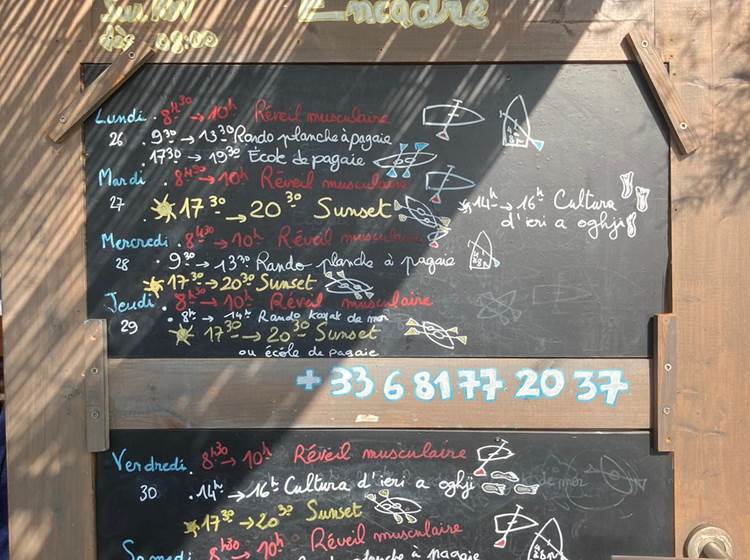 Sur RDV
dès 08:00
Encadré
Lundi. 8h30 → 10h Réveil musculaire
26 . 9 30 → 13 30 Rando planche à pagaie
. 17 30 → 19 30 École de pagaie
Mardi . 8h30 → 10h Réveil musculaire
27 14h → 16h Cultura
17 30 → 20 30 Sunset
d'ieri a oghji
Mercredi . 8h30 → 10h Réveil musculaire
28 . 9 30 → 13 30 Rando planche à pagaie
17 30 → 20 30 Sunset
Jeudi . 8h30 → 10h Réveil musculaire
29 . 8h → 14h Rando Kayak de mer
17 30 → 20 30 Sunset
ou école de pagaie
+ 33 6 81 77 20 37
Vendredi. 8h30 → 10h Réveil musculaire
30 . 14h → 16h Cultura d'ieri a oghji
17 30 → 20 30 Sunset
Samedi 8h30 → 10h Réveil musculaire
planche à pagaie